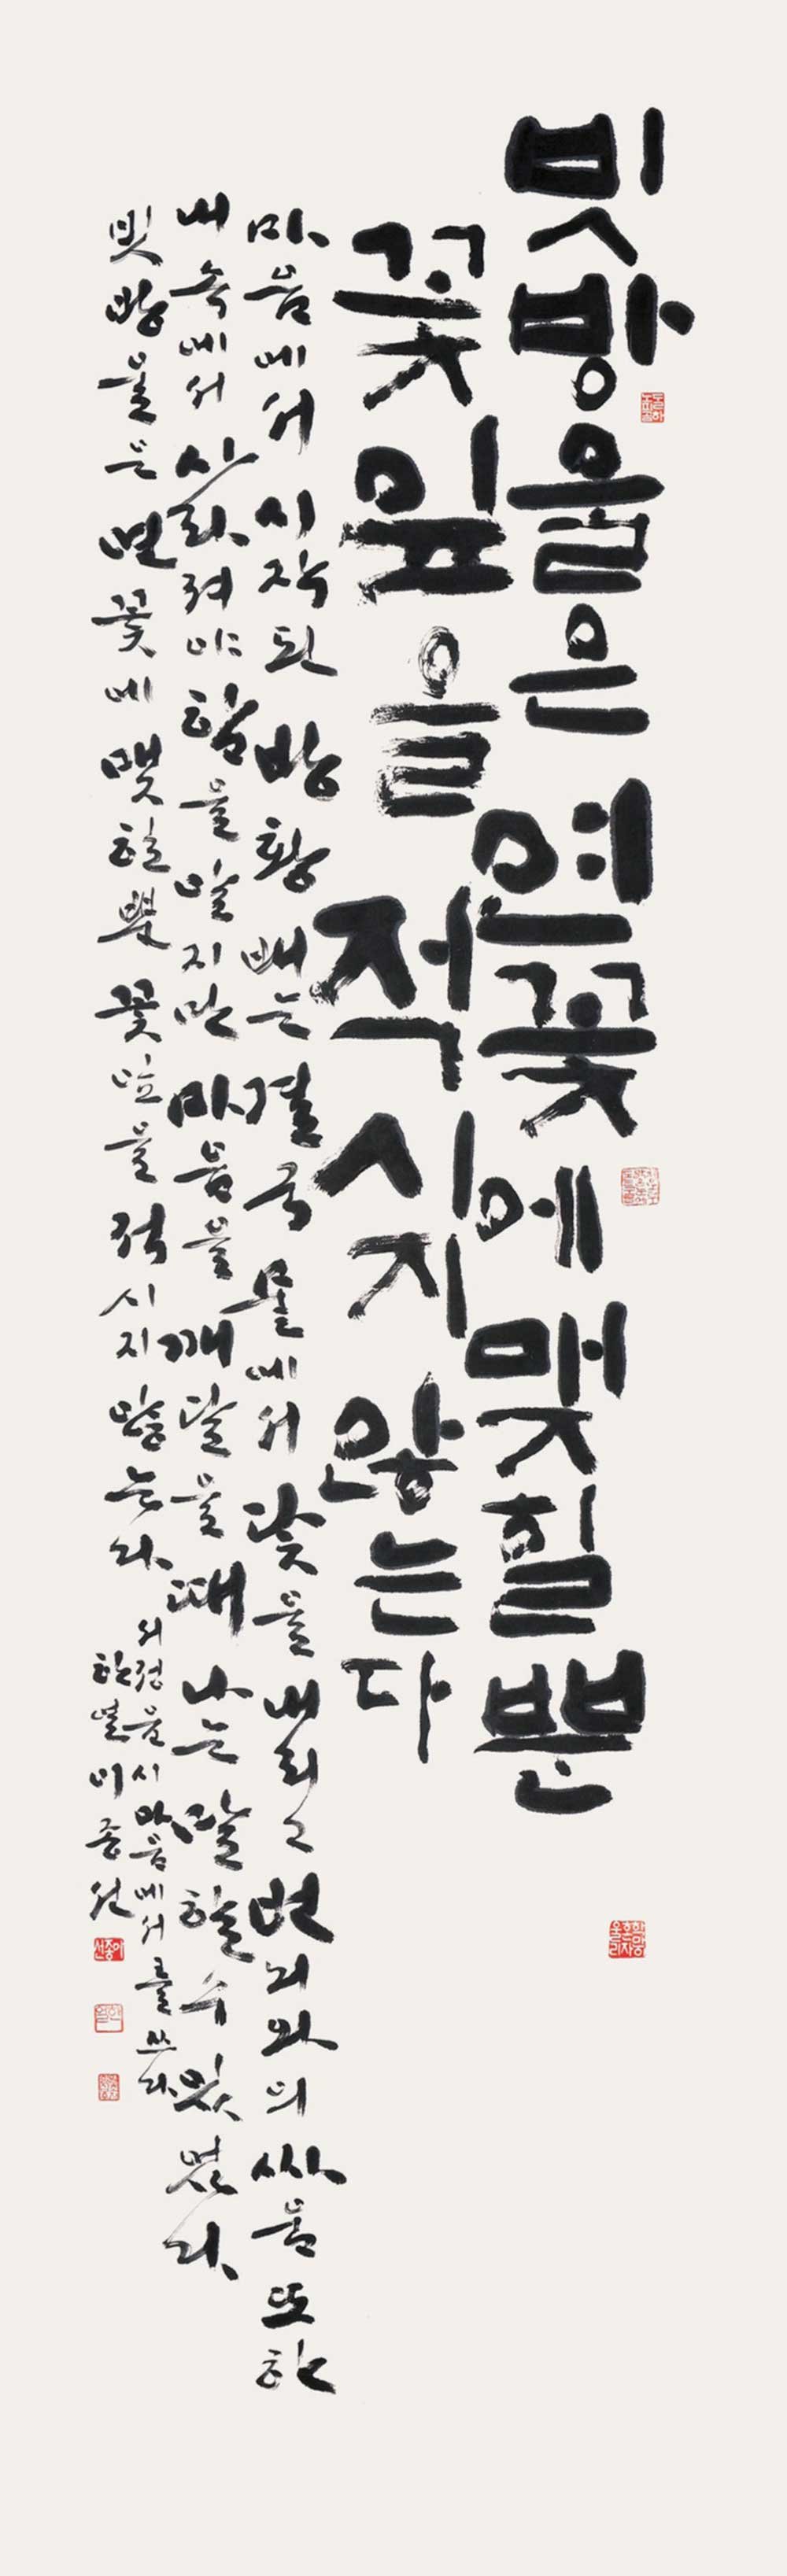 빗방울은 연꽃에 맺힐뿐
꽃잎을 적시지 않는다
마음에서 시작된 방황 배는 결국 물에서 닻을 내리고 번뇌와의 싸움 또한
내 속에서 사라져야 함을 알지만 마음을 깨달을 때 나는 말할 수 있었다
빗방울은 연꽃에 맺힐뿐 꽃잎을 적시지 않는다
시 마음에서를 쓰다
한얼 이종선